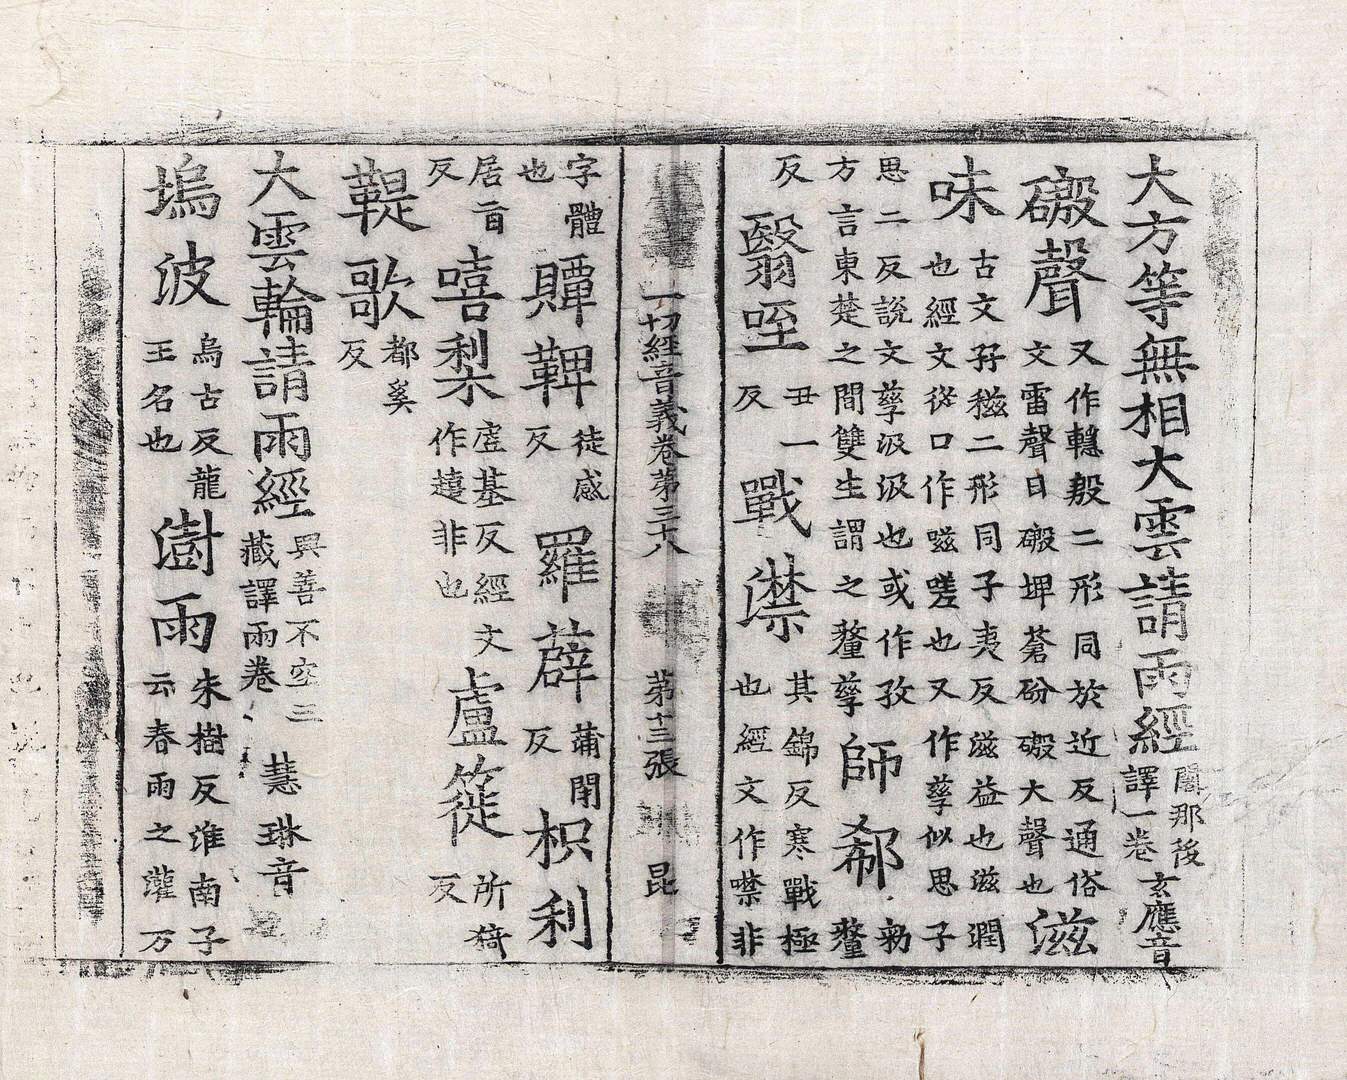 大方等無相大雲請雨經闍那後譯一卷玄應音
磤聲又作轋殷二形同於近反通俗文雷聲曰磤埤蒼砏磤大聲也滋
味古文孖稵二形同子夷反滋益也滋潤也經文從口作嗞嗟也又作孳似思子
思二反說文孳汲汲也或作孜師郗
方言東楚之間雙生謂之釐孳
反翳咥丑一反戰澿其錦反寒戰極也經文作噤非
一切經音義卷第三十八 第十三張 昆
字體也贉鞞徒感反羅薜蒲閇反枳利
居旨反嘻梨虗基反經文作㱆非也盧簁所猗反
鞮歌都奚反
大雲輪請雨經興善不空三藏譯兩卷慧琳音
塢波烏古反龍王名也澍雨朱樹反淮南子云春雨之灌万